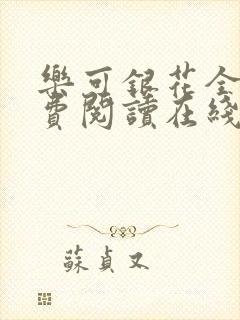 樂可銀花全
費閱讀在綫
蘇貞又